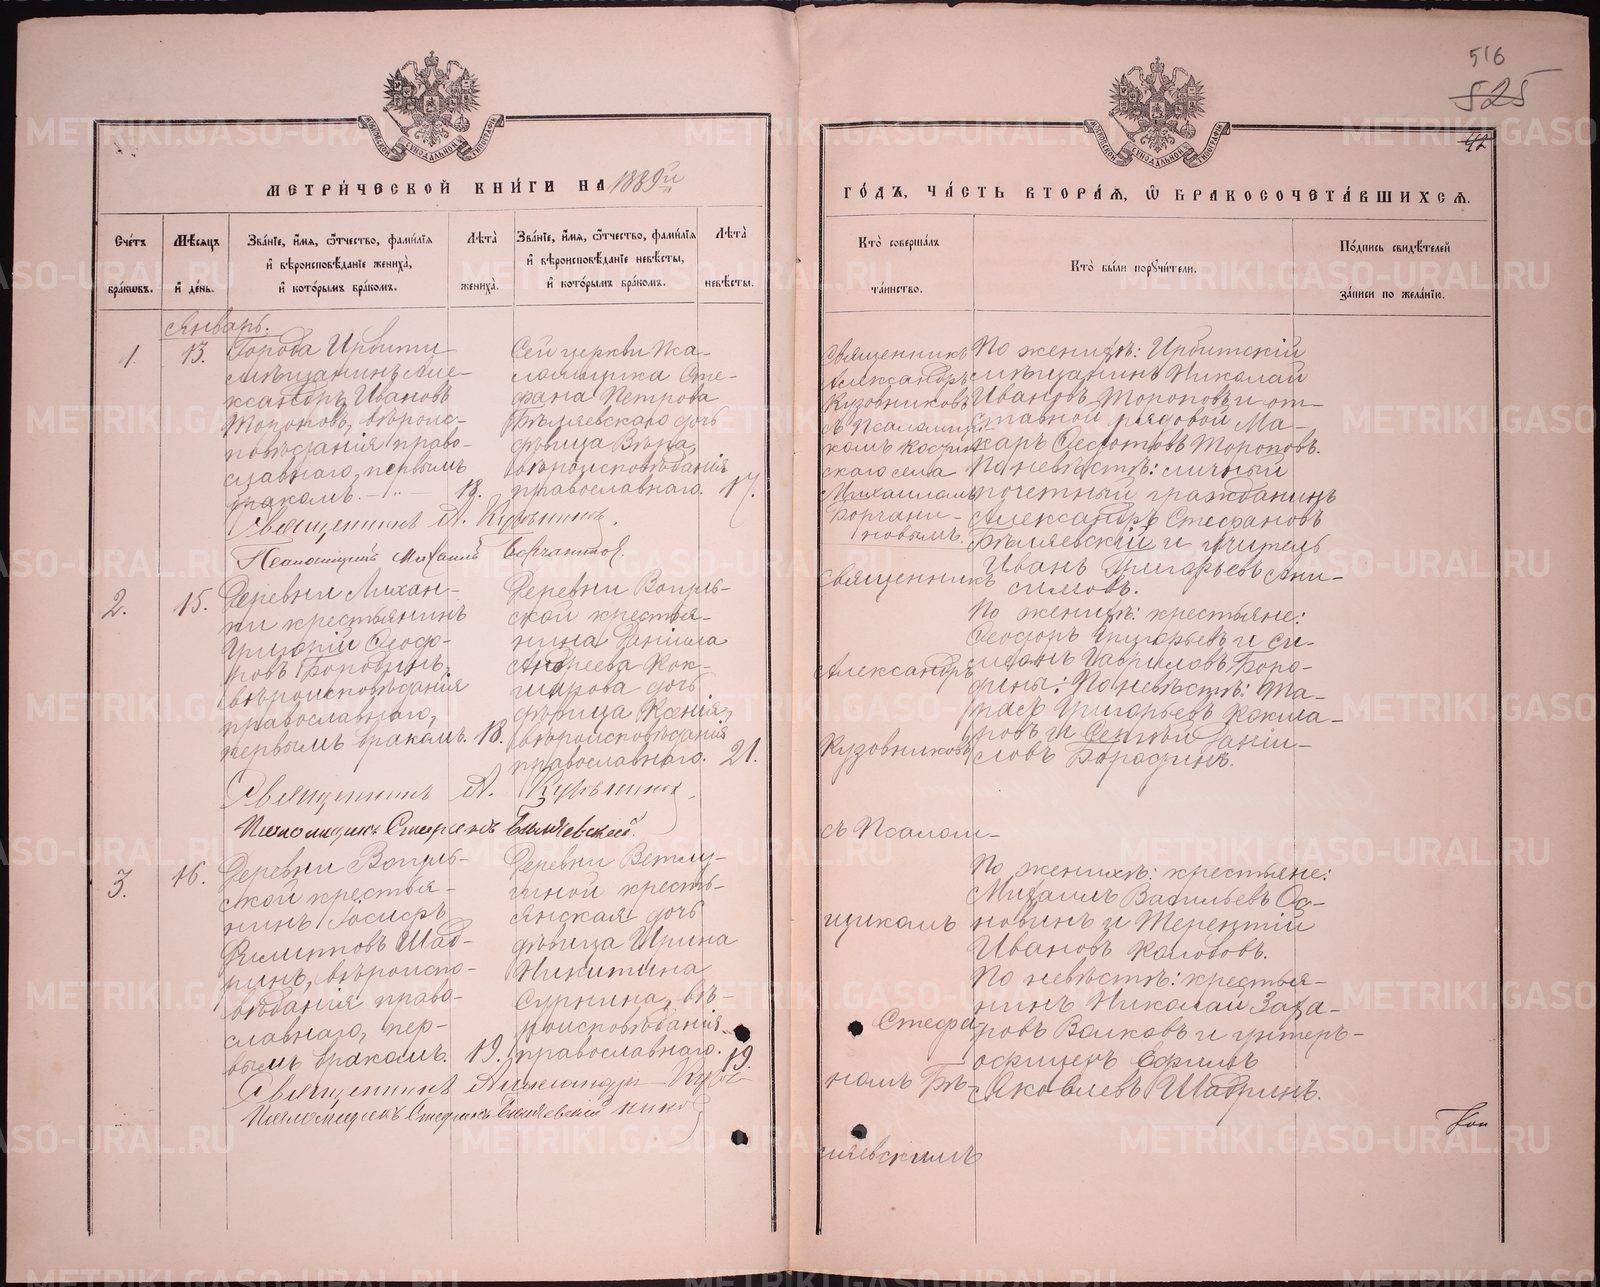 516
525
42
МЕТРИ́ЧЕСКОЙ КНИ́ГИ НА 1889й
ГО́ДЪ, ЧА́СТЬ ВТОРА́Я, Ѿ БРАКОСОЧЕТА́ВШИХСЯ.
Сче́тъ бра́кѡвъ.
Мѣ́сяцъ и́ де́нь.
Зва́нїе, и́мя, ѻ́тчество, фами́лїя и́ вѣроисповѣ́данїе жениха̀, и́ кото́рымъ бра́комъ.
Лѣ́та жениха̀.
Зва́нїе, и́мя, ѻ́тчество, фами́лїя и́ вѣроисповѣ́данїе невѣ́сты, и́ кото́рымъ бра́комъ.
Лѣ́та невѣ́сты.
Кто̀ соверша́лъ та́инство.
Кто̀ бы́ли порꙋчи́тели.
По́дпись свидѣ́телей за́писи по жела́нїю.
Январь.
1.
13.
Города Ирбити
мѣщанинъ Але-
ксандръ Ивановъ
Тороповъ, вѣроис-
повѣданія право-
славнаго, первымъ
бракомъ.
18.
Сей церкви Пса-
ломщика Сте-
фана Петрова
Бѣляевскаго дочь
дѣвица Вѣра,
вѣроисповѣданія
православнаго.
17.
Священникъ
Александръ
Кузовниковъ
съ Псаломщи-
комъ
скаго села
Михаиломъ
Борчани-
новымъ.
По женихѣ: Ирбитскій
мѣщанинъ Николай
Ивановъ Тороповъ и от-
ставной рядовой Ма-
каръ Ѳедотовъ Тороповъ.
По невѣстѣ: личный
почетный гражданинъ
Александръ Стефановъ
Бѣляевскій и учитель
Иванъ Григорьевъ Ани-
симовъ.
Священникъ А. Кузовник.
Псаломщикъ Михаилъ Борчанинов.
2.
15.
Деревни Михан-
ки крестьянинъ
Григорій Ѳеодо-
ровъ Бородинъ,
вѣроисповѣданія
православнаго,
первымъ бракомъ.
18.
Деревни Вогуль-
ской крестья-
нина Даніила
Андреева Кок-
шарова дочь
дѣвица Ксенія,
вѣроисповѣданія
православнаго.
21.
Священникъ
Александръ
Кузовниковъ
съ Псалом-
щикомъ
Стефа-
номъ Бѣ-
ляевскимъ
По женихѣ: крестьяне:
Ѳеодоръ Григорьевъ и Си-
меонъ Гавриловъ Боро-
дины; По невѣстѣ: Та-
расъ Григорьевъ Кокша-
ровъ и Сергѣй Даніи-
ловъ Бородинъ.
Священникъ А. Кузовников
Псаломщикъ Стефанъ Бѣляевскій.
3.
16.
Деревни Вогуль-
ской крестья-
нинъ Іосифъ
Филиповъ Шад-
ринъ, вѣроиспо-
вѣданія право-
славнаго, пер-
вымъ бракомъ.
19.
Деревни Ветлу-
гиной кресть-
янская дочь
дѣвица Ирина
Никитина
Сурнина, вѣ-
роисповѣданія
православнаго.
19.
По женихѣ: крестьяне:
Михаилъ Васильевъ Ос-
новинъ и Терентій
Ивановъ Колобовъ.
По невѣстѣ: крестья-
нинъ Николай Заха-
ровъ Волковъ и унтеръ-
офицеръ Ефимъ
Яковлевъ Шадринъ.
Священникъ Александръ Кузов-
Псаломщикъ Стефанъ Бѣляевскій ников